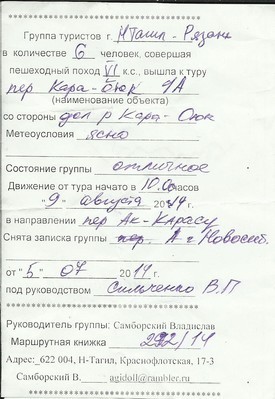 ************************************
Группа туристов г. Н Тагил - Рязань
в количестве 6 человек, совершая
пешеходный поход VI к.с., вышла к туру
пер Кара-Оюк 1А
(наименование объекта)
со стороны дол р Кара-Оюк
Метеоусловия ясно
Состояние группы отличное
Движение от тура начато в 10.00 часов
"9" августа 2014г.
в направлении пер Ак-Карасу
Снята записка группы г Новосиб.
от "5" 07 2014 г.
под руководством В.П
************************************
Руководитель группы: Самборский Владислав
Маршрутная книжка 292/14
Адрес: 622 004, Н-Тагил, Краснофлотская, 17-3
Самборский В. agidoll@rambler.ru
************************************